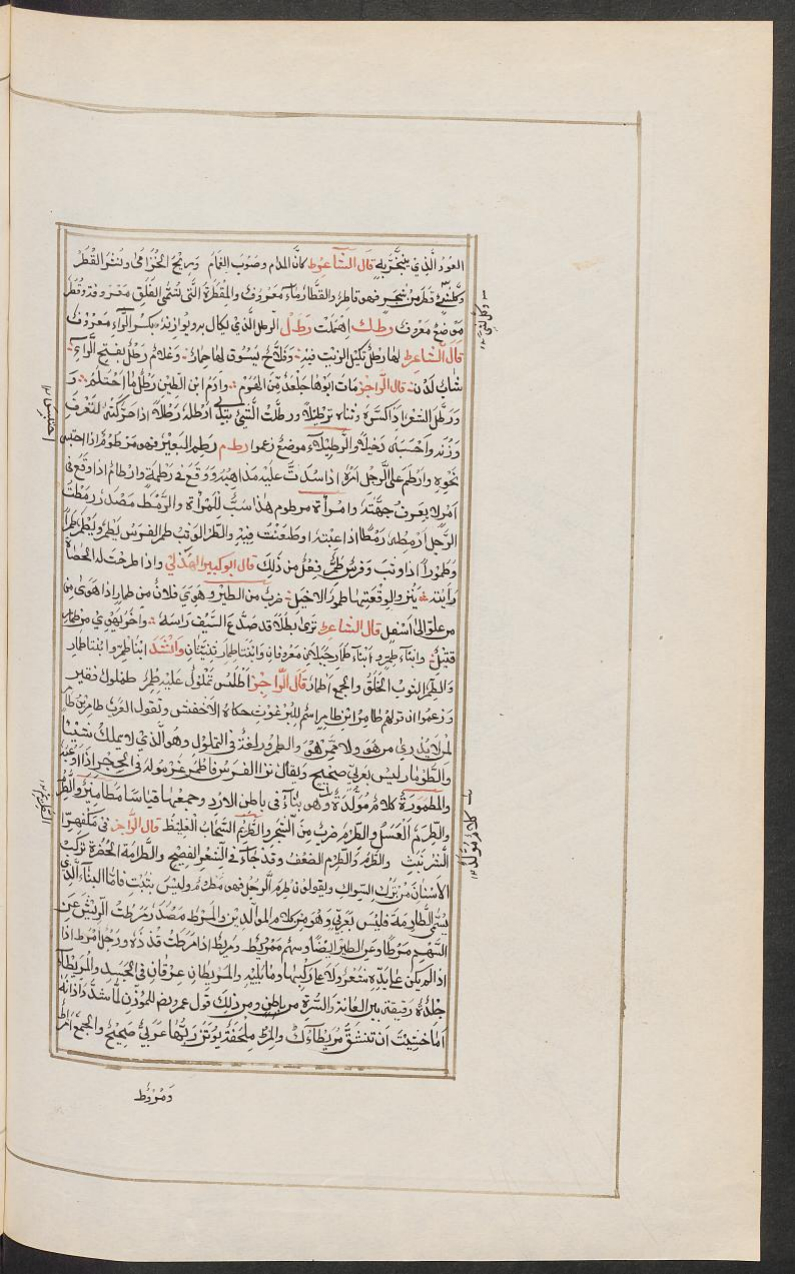 العود الذي يتبخّر به قال الشاعر ط كأنّ المدام وصوب الغمام وريح الخزامى ونشر القطر
وكل شيء قطر من شجر فهو قاطر والقطار ماء معروف والمقطرة التي تسمى الفلق معروفة وقطر
موضع معروف رطك اهملت رطل الرطل الذي يكال به ويوازنه بكسر الراء معروف
قال الشاعر ط لها رطل تكيل الزيت فيه وفلاح يسوق لها حمار وغلام رطل بفتح الراء
شاب لدن قال الراجز مات ابوها جلعد من الهموم وادم ابن الطين رطل ما احتلم و
ورطل الشعر اذا كسره وثناه ترطيلا ورطلت الشيء بيدي ارطله رطلا اذا حركته لتعرف
وزنه واحسبه دخيلا والرطيلاء موضع زعموا رطم رطم البعير فهو مرطوم اذا احتبس
نجوه وارطم على الرجل امره اذا سدت عليه مذاهبه ووقع في رطمة وارطام اذا وقع في
امر لا يعرف جهته وامرأة مرطوم هذا سب للمرأة والرمط مصدر رمطت
الرجل ارمطه رمطا اذا عبته او طعنت فيه والطمر الوثب طمر الفرس يطمر ويطمر طمرا
وطمورا اذا وثب وفرس طمر فعل من ذلك قال ابو كبير الهذلي واذا طرحت له الحصاة
رأيته ينزو لوقعتها طمور الاخيل ضرب من الطير وهوى فلان من طمار اذا هوى من
من علو الى اسفل قال الشاعر ط ترى بطلا قد صدع السيف رأسه وآخر يهوي من طمار
قتيل وابناء طمر وابناء طمار جبلان معروفان وابنتا طمار ثنيتان وانشد ابنا طمر وابنتا طمار
والطمر الثوب الخلق والجمع اطمار قال الراجز اطلس تملول عليه طمر طملول فقير
وزعموا ان قولهم طامر ابن طامر اسم للبرغوث حكاه الاخفش وتقول العرب طامر بن طامر
لمن لا يدرى من هو ولا ممن هو والطمرور لغة في الطملول وهو الذي لا يملك شيئا
والطومار ليس بعربي صحيح ويقال نزا الفرس فاطمر غرموله في الحجر اذا اوعبه
والمطمورة كلام مولدة وهي بناء في باطن الارض وجمعها قياسا مطامير والطر
والطريم العسل والطرم ضرب من الشجر والطريم السحاب الغليظ قال الراجز في مكفهر
والطرم والطرم الضعف وقد جاء في الشعر الفصيح والطرامة الخضرة تركب
الاسنان من ترك السواك ويقولون طرم الرجل فهو مطرم وليس بثبت فاما البناء الذي
يسمى الطارمة فليس بعربي وهو من كلام المولدين والمرط مصدر مرطت الريش عن
السهم مرطا وعن الطير ايضا وسهم ممروط ومريط اذا مرطت قذذه ورجل امرط اذا
اذا لم يكن على جسده شعر والمريطان عرقان في الجسد والمريطاء
جلدة رقيقة بين العانة والسرة من باطن ومن ذلك قول عمر رض للمؤذن لما شد اذانه
اما خشيت ان تنشق مريطاؤك والمرط ملحفة يؤتزر بها عربي صحيح والجمع امراط
ومروط
وكل شيء
احتبس
كلام مولد